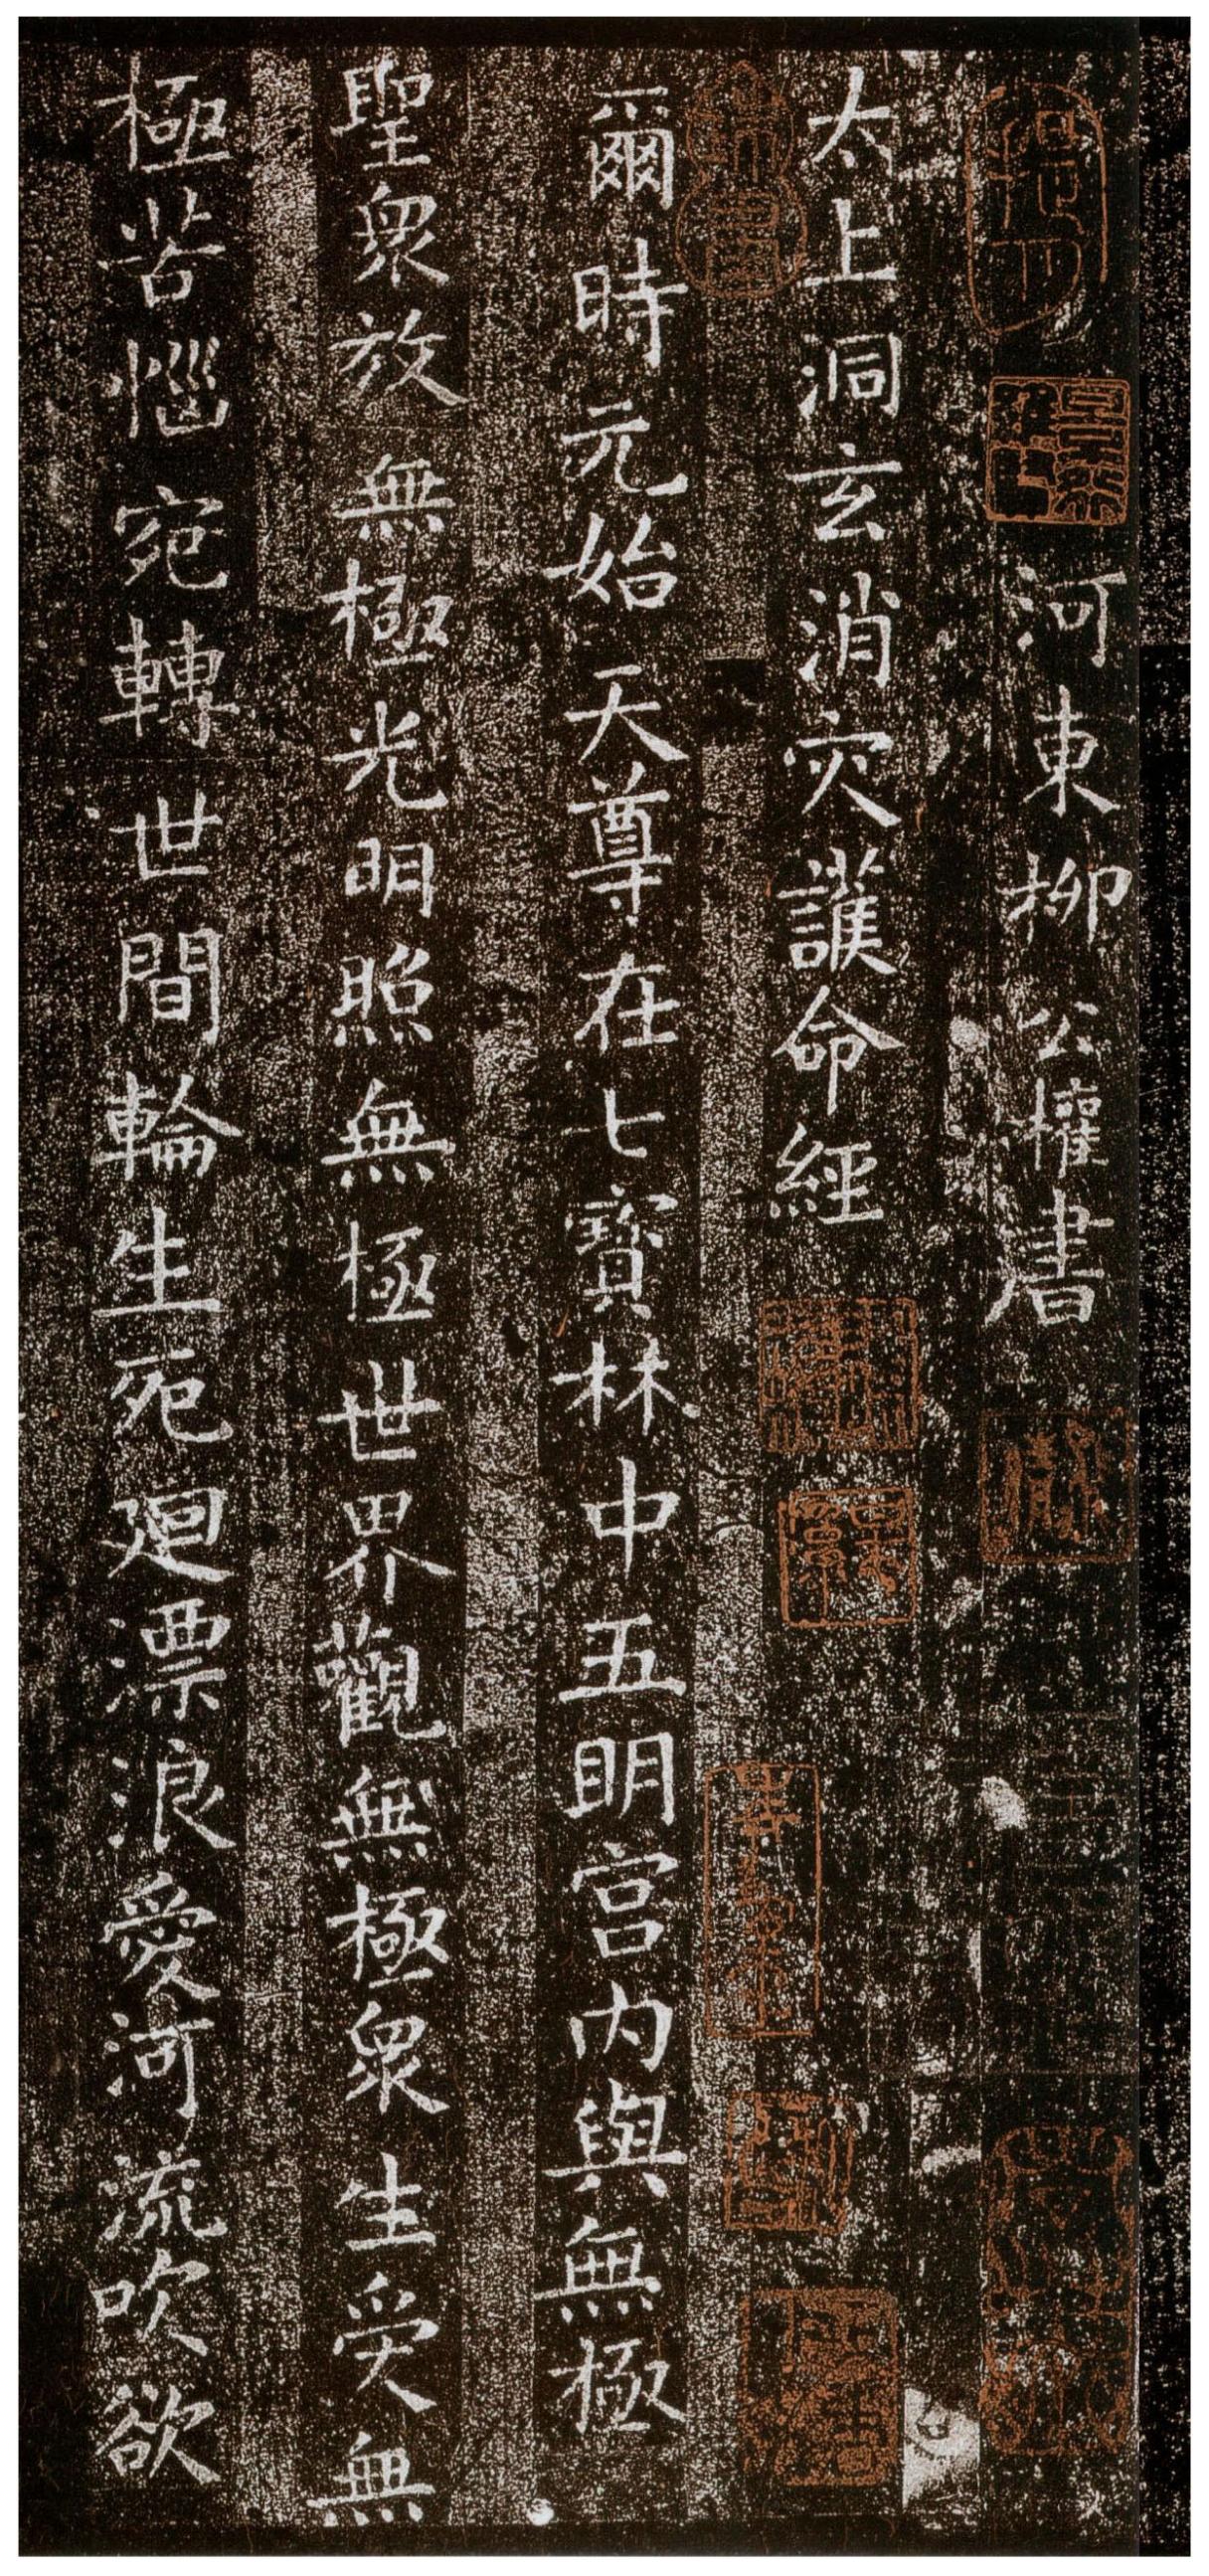 河東柳公權書
太上洞玄消灾護命經
爾時元始天尊在七寶林中五明宮內與無極
聖眾放無極光明照無極世界觀無極眾生受無
極苦惱宛轉世間輪生死廻漂浪愛河流吹欲